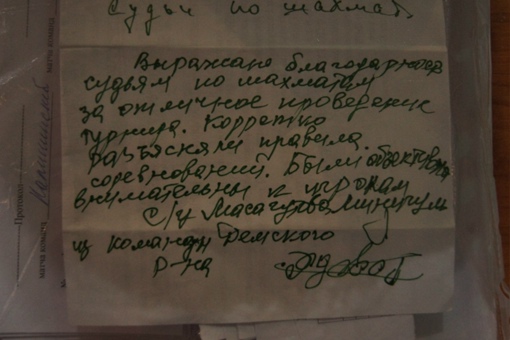 Судьи по шахмат.
Выражаю благодарность
судьям по шахматам
за отличное проведение
турнира. Корректно
разъясняли правила
соревнований. Были объективны
внимательны к игрокам
с/у
из команды Ремского
р-на
Протокол
матча команд